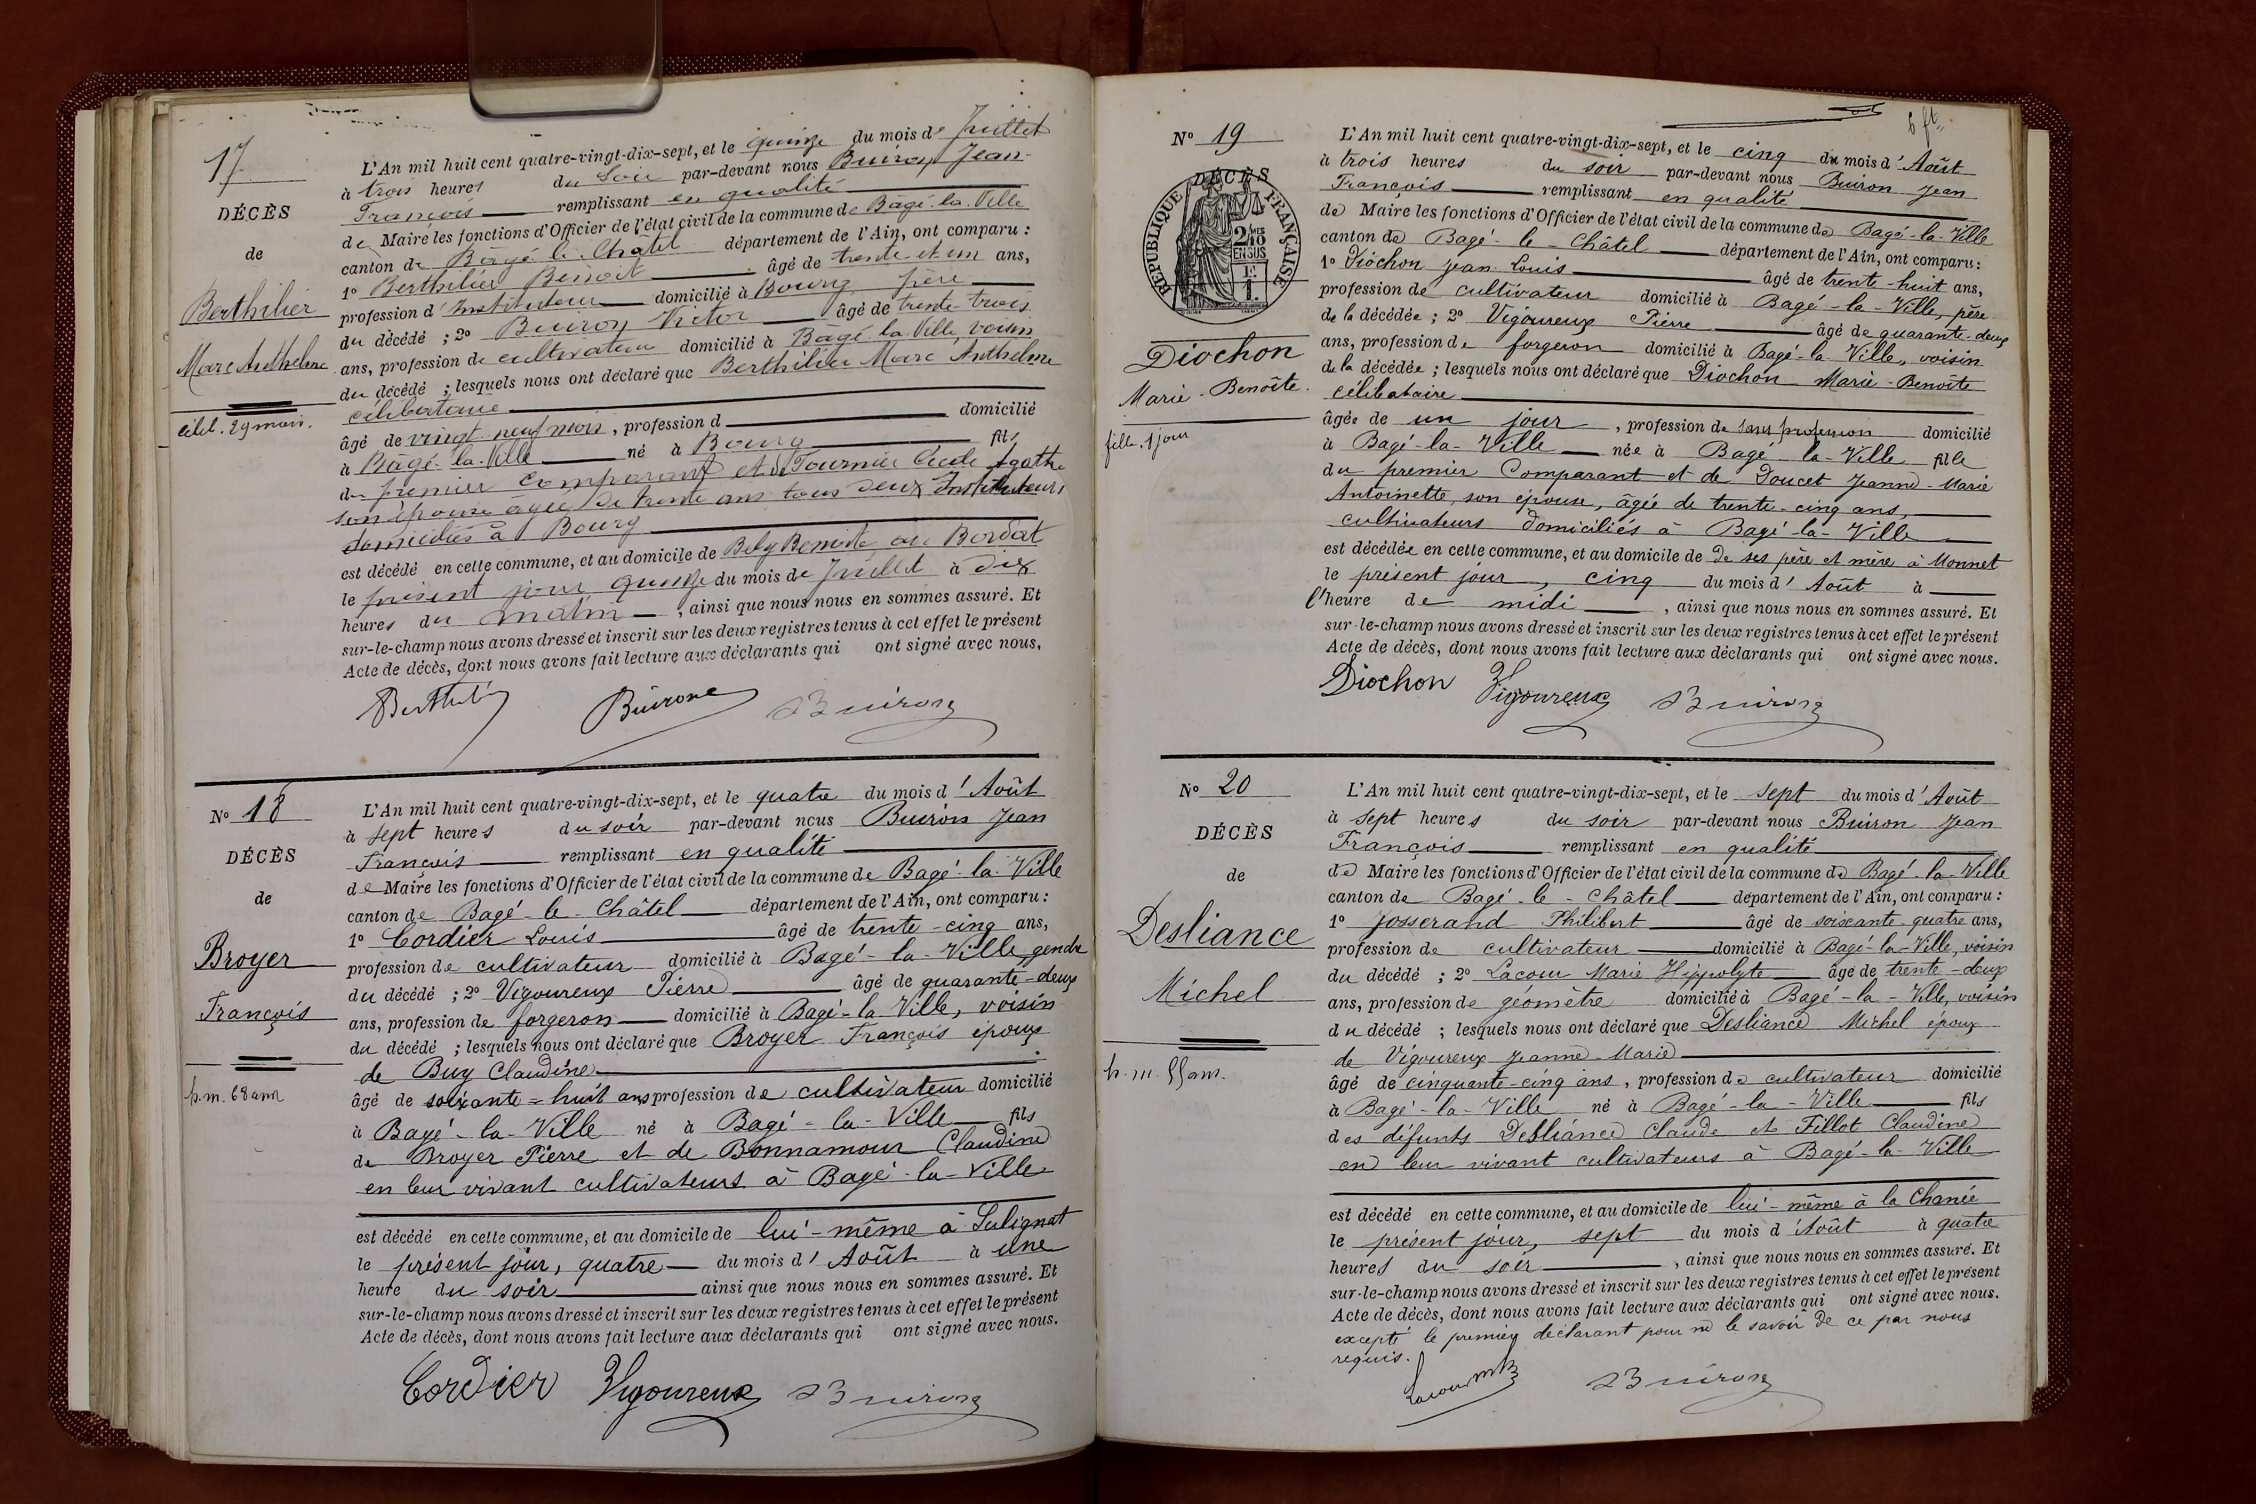 17
DÉCÈS
de
Berthilier
Marc Anthelme
célib. 29 mois.
L'An mil huit cent quatre-vingt-dix-sept, et le quinze du mois de Juillet
à trois heures du Soir par-devant nous Buiron Jean-
François remplissant en qualité
de Maire les fonctions d'Officier de l'état civil de la commune de Bagé-la-Ville
canton de Bâgé-le-Châtel département de l'Ain, ont comparu :
1º Berthilier Benoit âgé de trente-et-un ans,
profession d'Instituteur domicilié à Bourg père
du décédé ; 2º Buiron Victor âgé de trente-trois
ans, profession de cultivateur domicilié à Bâgé-la-Ville, voisin
du décédé ; lesquels nous ont déclaré que Berthilier Marc Anthelme
célibataire
âgé de vingt-neuf mois, profession d domicilié
à Bâgé-la-Ville né à Bourg fils
du premier comparant et de Fournier Cécile Agathe
son épouse âgée de trente ans tous deux Instituteurs
domiciliés à Bourg
est décédé en cette commune, et au domicile de Bély Benoite au Bordat
le présent jour quinze du mois de Juillet à dix
heures du matin , ainsi que nous nous en sommes assuré. Et
sur-le-champ nous avons dressé et inscrit sur les deux registres tenus à cet effet le présent
Acte de décès, dont nous avons fait lecture aux déclarants qui ont signé avec nous.
Buiron Buiron
Nº 18
DÉCÈS
de
Broyer
François
h.m. 68 ans
L'An mil huit cent quatre-vingt-dix-sept, et le quatre du mois d'Août
à sept heures du soir par-devant nous Buiron Jean
François remplissant en qualité
de Maire les fonctions d'Officier de l'état civil de la commune de Bagé-la-Ville
canton de Bagé-le-Châtel département de l'Ain, ont comparu :
1º Cordier Louis âgé de trente-cinq ans,
profession de cultivateur domicilié à Bagé-la-Ville, gendre
du décédé ; 2º Vigoureux Pierre âgé de quarante-deux
ans, profession de forgeron domicilié à Bagé-la-Ville, voisin
du décédé ; lesquels nous ont déclaré que Broyer François époux
de Buy Claudine
âgé de soixante-huit ans profession de cultivateur domicilié
à Bagé-la-Ville né à Bagé-la-Ville fils
de Broyer Pierre et de Bonnamour Claudine
en leur vivant cultivateurs à Bagé-la-Ville
est décédé en cette commune, et au domicile de lui-même à Sulignat
le présent jour, quatre du mois d'Août à une
heure du soir ainsi que nous nous en sommes assuré. Et
sur-le-champ nous avons dressé et inscrit sur les deux registres tenus à cet effet le présent
Acte de décès, dont nous avons fait lecture aux déclarants qui ont signé avec nous.
Cordier Vigoureux Buiron
Nº 19
DÉCÈS
RÉPUBLIQUE FRANÇAISE
2/10 EN SUS
Diochon
Marie-Benoîte
fille. 1 jour
L'An mil huit cent quatre-vingt-dix-sept, et le cinq du mois d'Août
à trois heures du soir par-devant nous Buiron Jean
François remplissant en qualité
de Maire les fonctions d'Officier de l'état civil de la commune de Bagé-la-Ville
canton de Bagé-le-Châtel département de l'Ain, ont comparu :
1º Diochon Jean Louis âgé de trente-huit ans,
profession de cultivateur domicilié à Bagé-la-Ville, père
de la décédée ; 2º Vigoureux Pierre âgé de quarante-deux
ans, profession de forgeron domicilié à Bagé-la-Ville, voisin
de la décédée ; lesquels nous ont déclaré que Diochon Marie-Benoîte
célibataire
âgée de un jour , profession de sans profession domicilié
à Bagé-la-Ville née à Bagé-la-Ville fille
du premier Comparant et de Doucet Jeanne-Marie
Antoinette, son épouse, âgée de trente-cinq ans,
cultivateurs domiciliés à Bagé-la-Ville
est décédée en cette commune, et au domicile de de ses père et mère à Monnet
le présent jour, cinq du mois d'Août à
l'heure de midi , ainsi que nous nous en sommes assuré. Et
sur-le-champ nous avons dressé et inscrit sur les deux registres tenus à cet effet le présent
Acte de décès, dont nous avons fait lecture aux déclarants qui ont signé avec nous.
Diochon Vigoureux Buiron
Nº 20
DÉCÈS
de
Desliance
Michel
h. m. 55 ans.
L'An mil huit cent quatre-vingt-dix-sept, et le sept du mois d'Août
à sept heures du soir par-devant nous Buiron Jean
François remplissant en qualité
de Maire les fonctions d'Officier de l'état civil de la commune de Bagé-la-Ville
canton de Bagé-le-Châtel département de l'Ain, ont comparu :
1º Josserand Philibert âgé de soixante-quatre ans,
profession de cultivateur domicilié à Bagé-la-Ville, voisin
du décédé ; 2º Lacour Marie Hippolyte âgé de trente-deux
ans, profession de géomètre domicilié à Bagé-la-Ville, voisin
du décédé ; lesquels nous ont déclaré que Desliance Michel époux
de Vigoureux Jeanne-Marie
âgé de cinquante-cinq ans, profession de cultivateur domicilié
à Bagé-la-Ville né à Bagé-la-Ville fils
des défunts Desliance Claude et Fillot Claudine
en leur vivant cultivateurs à Bagé-la-Ville
est décédé en cette commune, et au domicile de lui-même à la Chanée
le présent jour, sept du mois d'Août à quatre
heures du soir , ainsi que nous nous en sommes assuré. Et
sur-le-champ nous avons dressé et inscrit sur les deux registres tenus à cet effet le présent
Acte de décès, dont nous avons fait lecture aux déclarants qui ont signé avec nous.
excepté le premier déclarant pour ne le savoir de ce par nous
requis.
Lacour Buiron